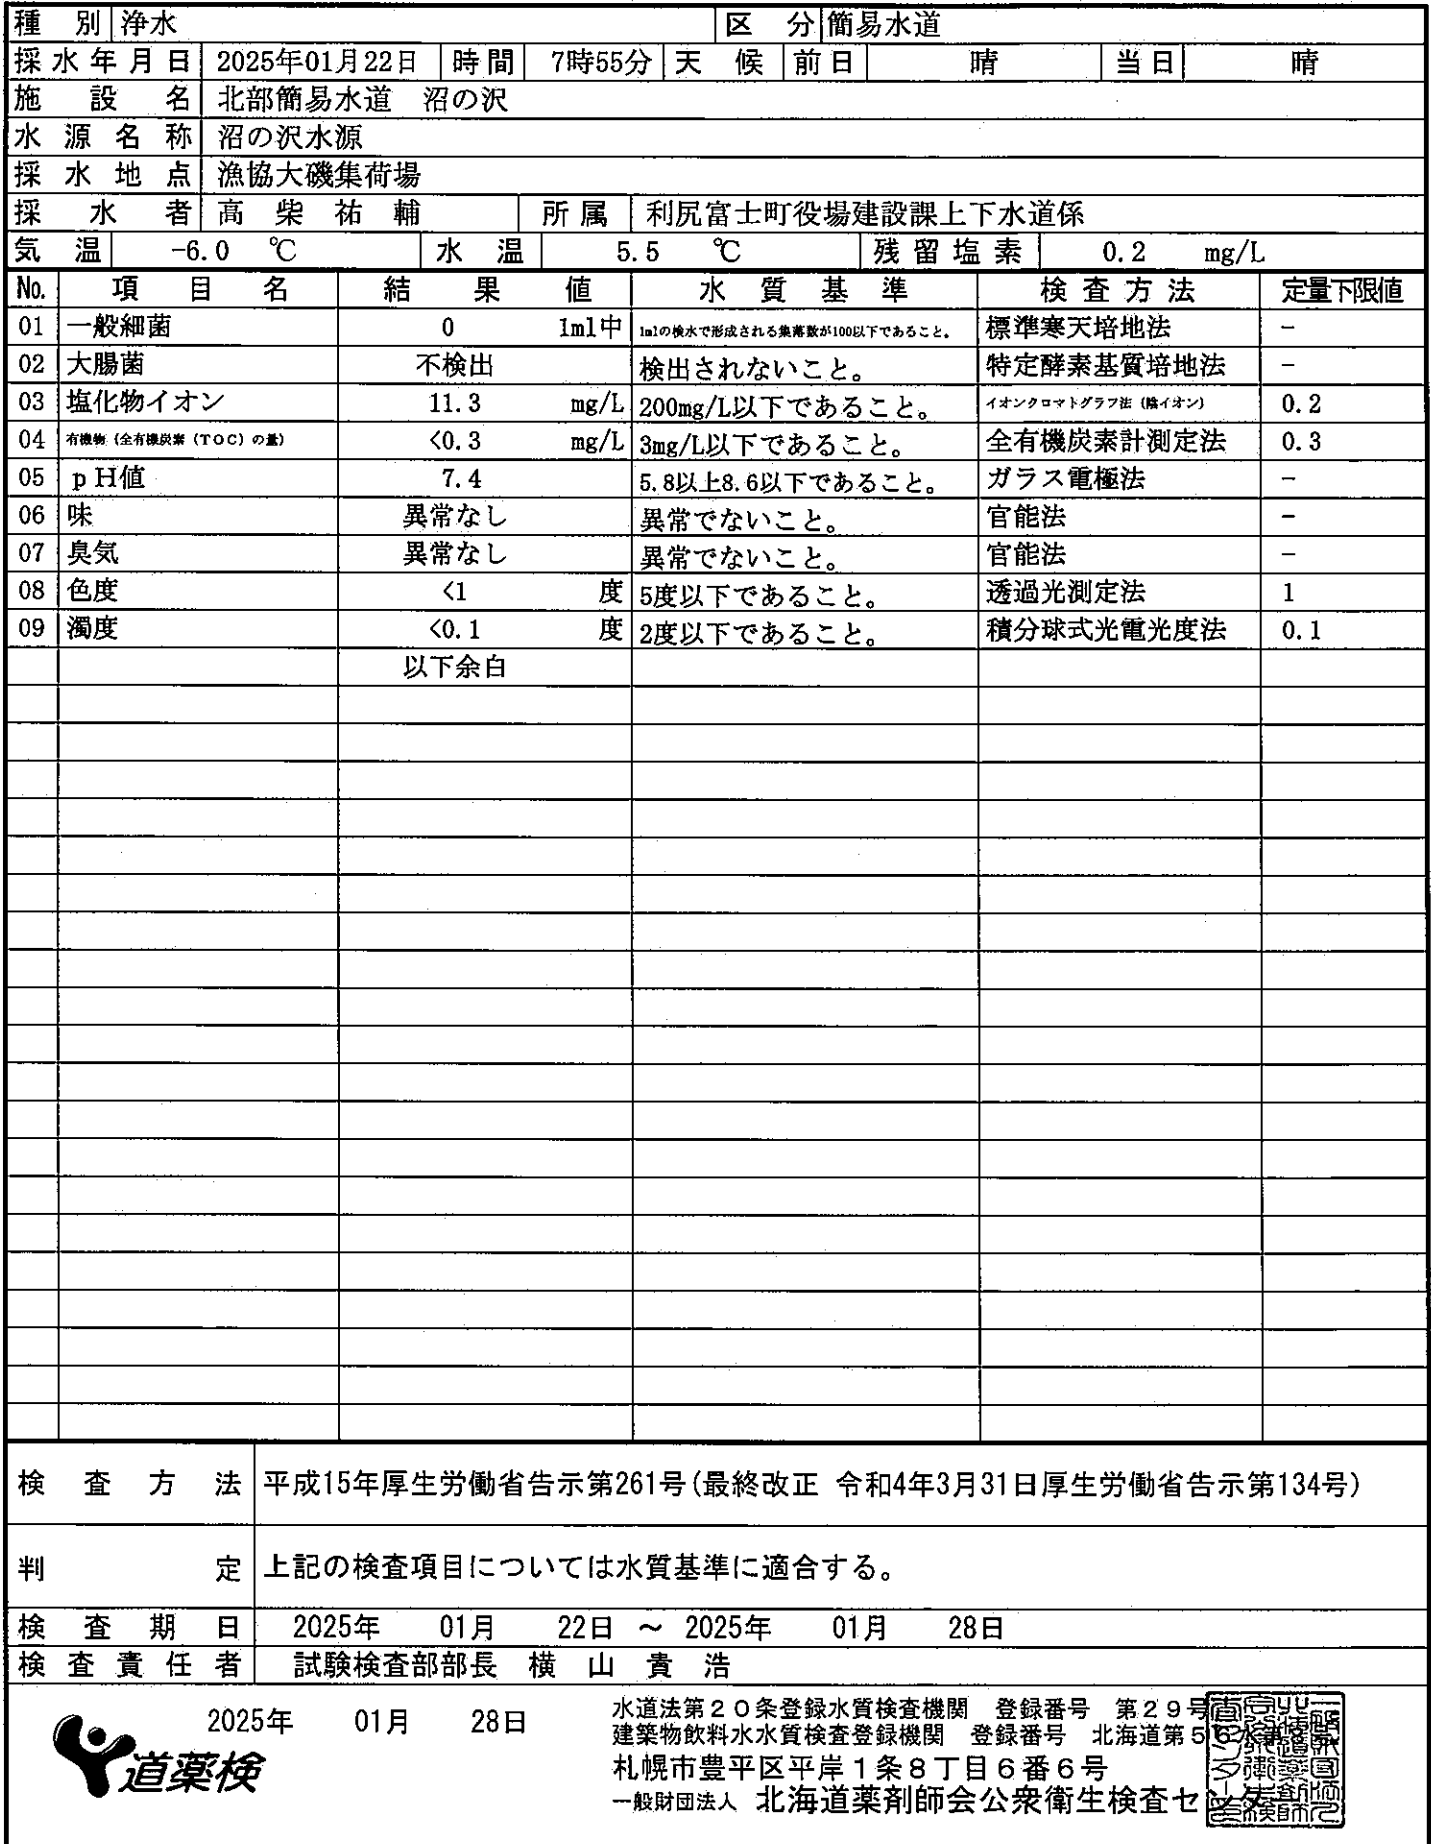 種 別 浄水 区 分 簡易水道
採水年月日 2025年01月22日 時間 7時55分 天 候 前日 晴 当日 晴
施 設 名 北部簡易水道 沼の沢
水 源 名 称 沼の沢水源
採 水 地 点 漁協大磯集荷場
採 水 者 高 柴 祐 輔 所属 利尻富士町役場建設課上下水道係
気 温 -6.0 ℃ 水 温 5.5 ℃ 残留塩素 0.2 mg/L
No. 項 目 名 結 果 値 水 質 基 準 検 査 方 法 定量下限値
01 一般細菌 0 1ml中 1mlの検水で形成される集落数が100以下であること。 標準寒天培地法 -
02 大腸菌 不検出 検出されないこと。 特定酵素基質培地法 -
03 塩化物イオン 11.3 mg/L 200mg/L以下であること。 イオンクロマトグラフ法(陰イオン) 0.2
04 有機物(全有機炭素(TOC)の量) <0.3 mg/L 3mg/L以下であること。 全有機炭素計測定法 0.3
05 pH値 7.4 5.8以上8.6以下であること。 ガラス電極法 -
06 味 異常なし 異常でないこと。 官能法 -
07 臭気 異常なし 異常でないこと。 官能法 -
08 色度 <1 度 5度以下であること。 透過光測定法 1
09 濁度 <0.1 度 2度以下であること。 積分球式光電光度法 0.1
以下余白
検 査 方 法 平成15年厚生労働省告示第261号(最終改正 令和4年3月31日厚生労働省告示第134号)
判 定 上記の検査項目については水質基準に適合する。
検 査 期 日 2025年 01月 22日 ～ 2025年 01月 28日
検査責任者 試験検査部部長 横 山 貴 浩
2025年 01月 28日
道薬検
水道法第20条登録水質検査機関 登録番号 第29号
建築物飲料水水質検査登録機関 登録番号 北海道第56水第
札幌市豊平区平岸1条8丁目6番6号
一般財団法人 北海道薬剤師会公衆衛生検査センター